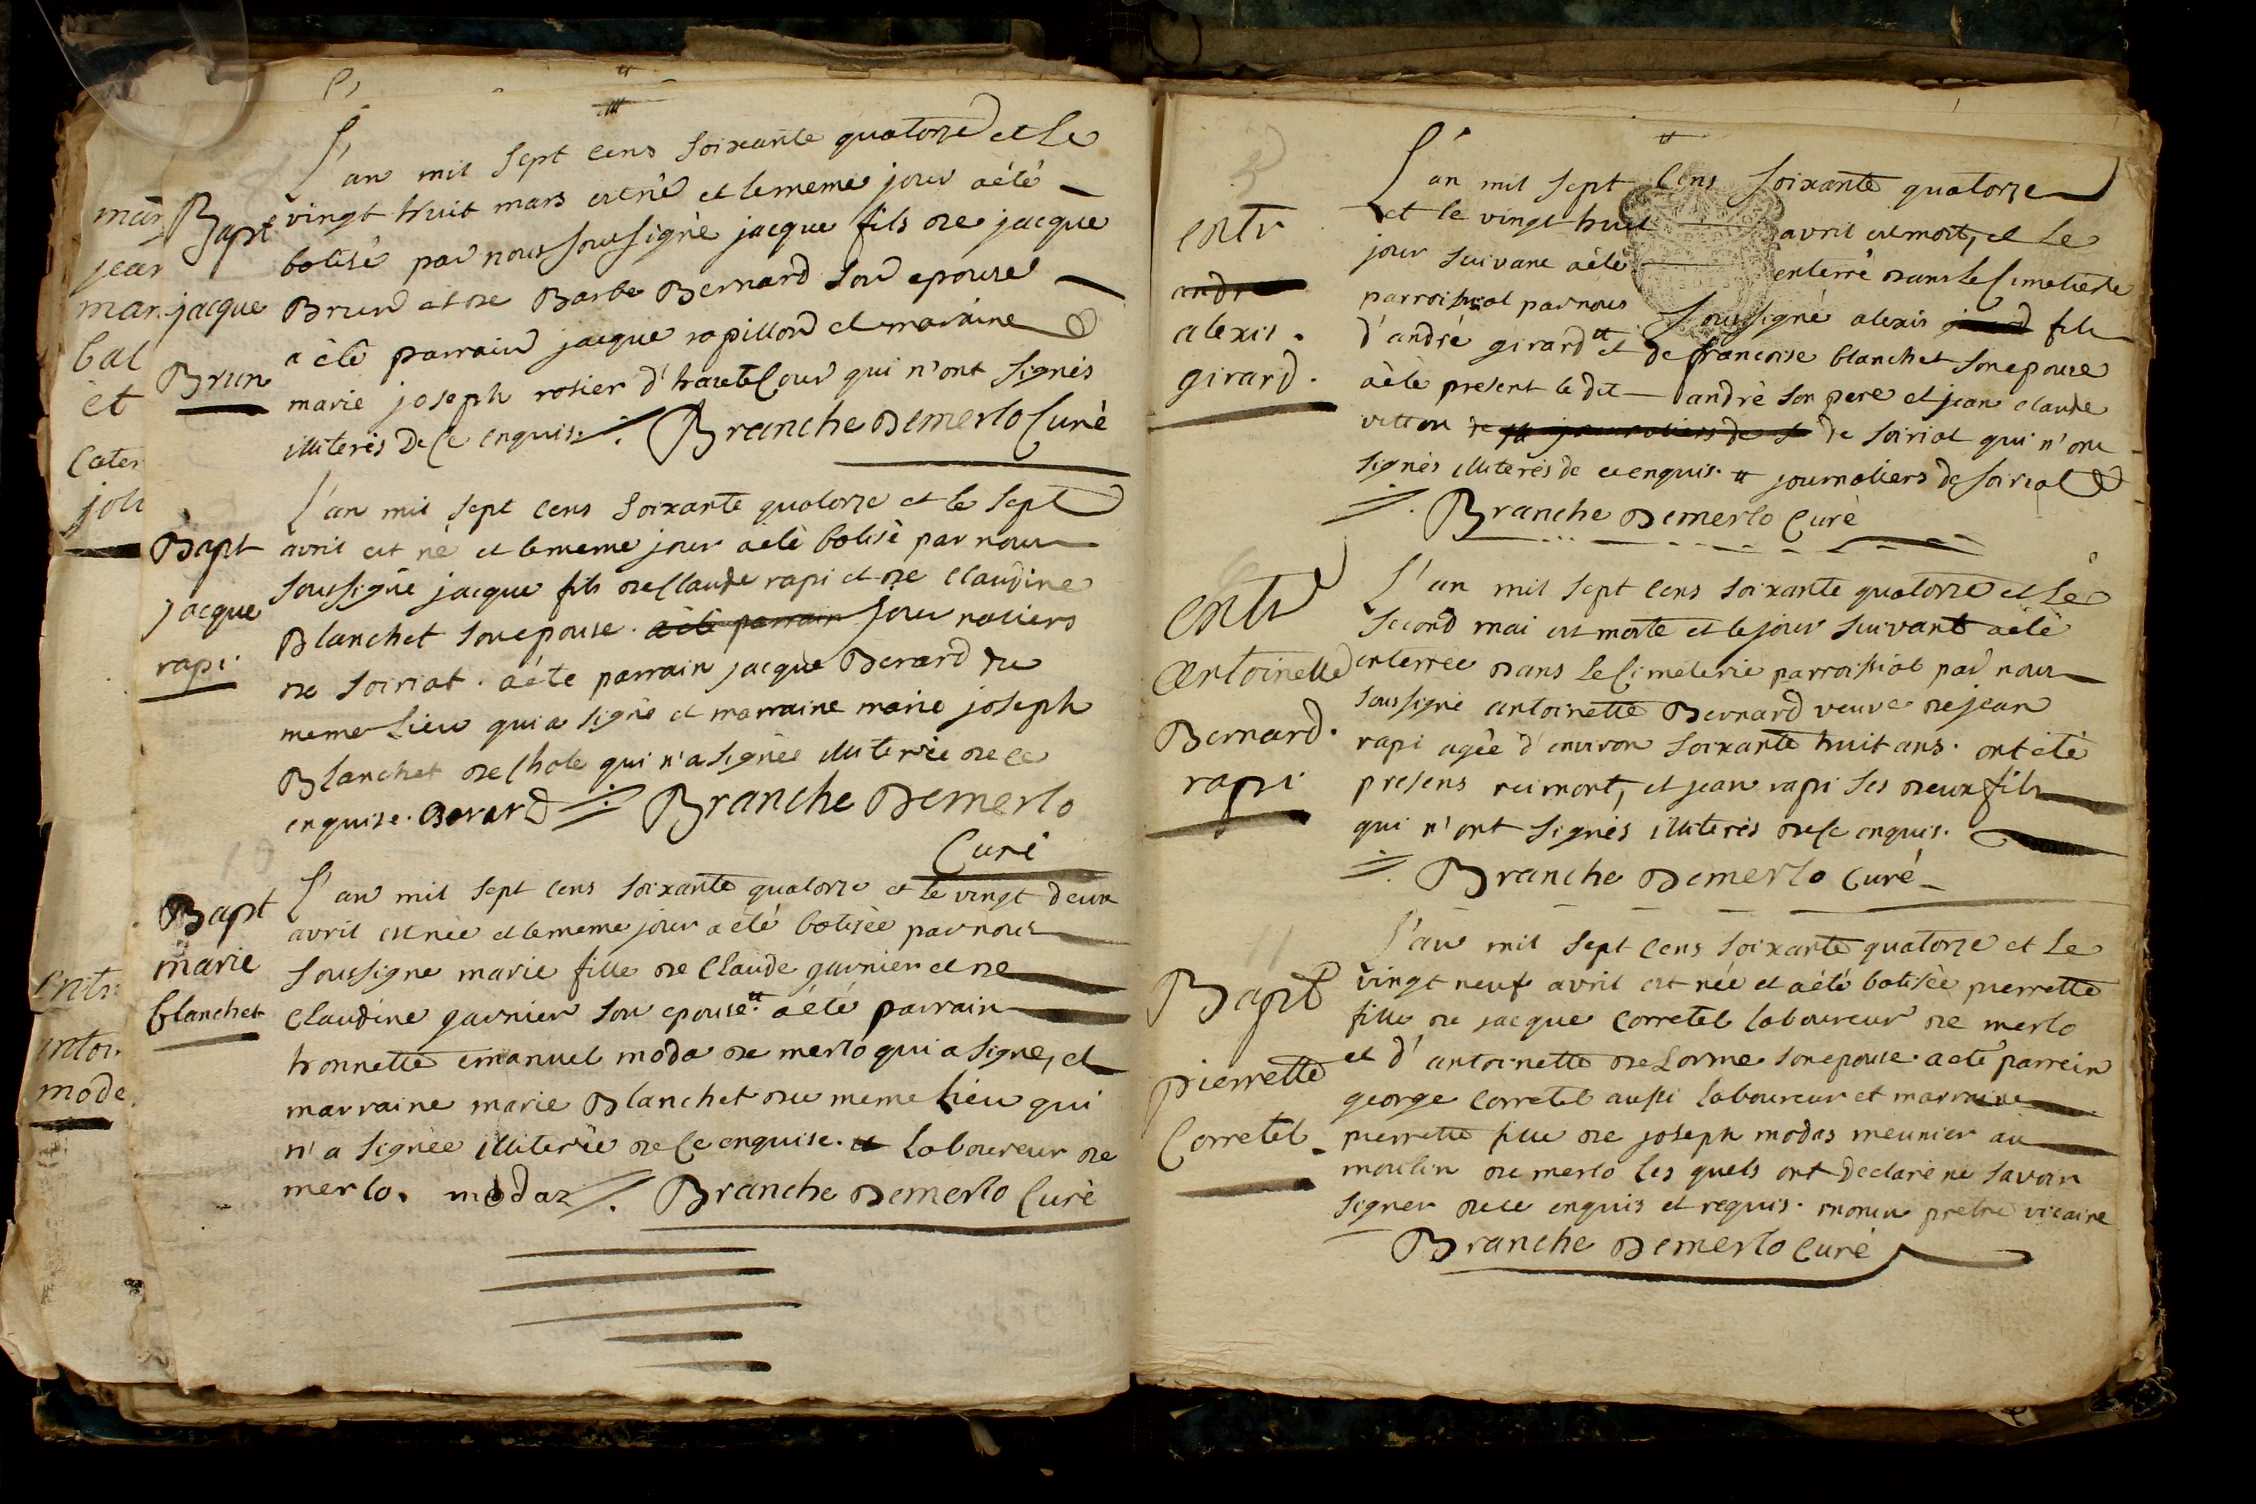 L'an mil sept cens soixante quatorze et le
vingt huit mars est né et le meme jour a été
batisé par nous soussigné jacque fils de jacque
Brun et de Barbe Bernard son epouse
a été parrain jacque rapillord et marraine
marie joseph rosier d'hautecour qui n'ont signés
illiterés de ce enquis. Branche Demerlo Curé
Bapt
jacque
Brun
L'an mil sept cens soixante quatorze et le sept
avril est né et le meme jour a été batisé par nous
soussigné jacque fils de Claude rapi et de claudine
Blanchet son epouse. a été parrain journaliers
de soiriat. a été parrain jacque Berard du
meme lieu qui a signé et marraine marie joseph
Blanchet de chale qui n'a signée illiterée de ce
enquise. Berard Branche Demerlo
Curé
Bapt
jacque
rapi
L'an mil sept cens soixante quatorze et le vingt deux
avril est née et le meme jour a été batisée par nous
soussigne marie fille de Claude garnier et de
Claudine garnier son epouse. a été parrain
honnette emanuel moda de merlo qui a signe, et
marraine marie Blanchet du meme lieu qui
n'a signée illiterée de ce enquise. laboureur de
merlo. modaz Branche Demerlo Curé
Bapt
marie
blanchet
mar
jean
mar
bal
et
Cater
entr
mode
L'an mil sept cens soixante quatorze
et le vingt huit avril est mort, et le
jour suivant a été enterré dans le Cimetiere
parroissial par nous soussigné alexis fils
d'andré girard et de francoise blanchet son epouse
a été present le dit andré son pere et jean claude
vitton de soiriat qui n'ont
signés illiterés de ce enquis. journaliers de soiriat
Branche Demerlo Curé
entr
andre
alexis.
girard.
L'an mil sept cens soixante quatorze et le
second mai est morte et le jour suivant a été
enterrée dans le Cimeterie parroissial par nous
soussigné antoinette Bernard veuve de jean
rapi agée d'environ soixante huit ans. ont été
presens reimont, et jean rapi ses deux fils
qui n'ont signés illiterés de ce enquis.
Branche Demerlo Curé
entr
Antoinette
Bernard.
rapi
L'an mil sept cens soixante quatorze et le
vingt neuf avril est née et a été batisée pierrette
fille de jacque Corretel laboureur de merlo
et d'antoinette deLorme son epouse. a été parrein
george Corretel aussi laboureur et marraine
pierrette fille de joseph modas meunier au
moulin de merlo les quels ont declaré ne savoir
signer de ce enquis et requis. monin pretre vicaire
Branche Demerlo Curé
Bapt
pierrette
Corretel